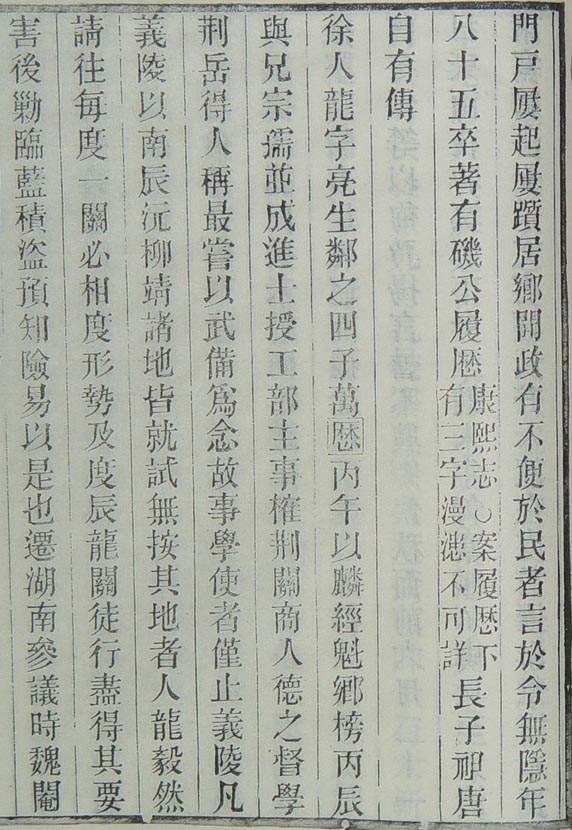 門戸屢起屢躓居鄉聞政有不便於民者言於令無隱年
八十五卒著有磯公履歷康熙志○案履歷下有三字漫漶不可詳長子祀唐
自有傳
徐人龍字亮生鄰之四子萬歷丙午以麟經魁鄉榜丙辰
與兄宗孺並成進士授工部主事榷荆關商人德之督學
荆岳得人稱最嘗以武備爲念故事學使者僅止義陵凡
義陵以南辰沅柳靖諸地皆就試無按其地者人龍毅然
請往每度一關必相度形勢及度辰龍關徒行盡得其要
害後勦臨藍積盜預知險易以是也遷湖南參議時魏閹